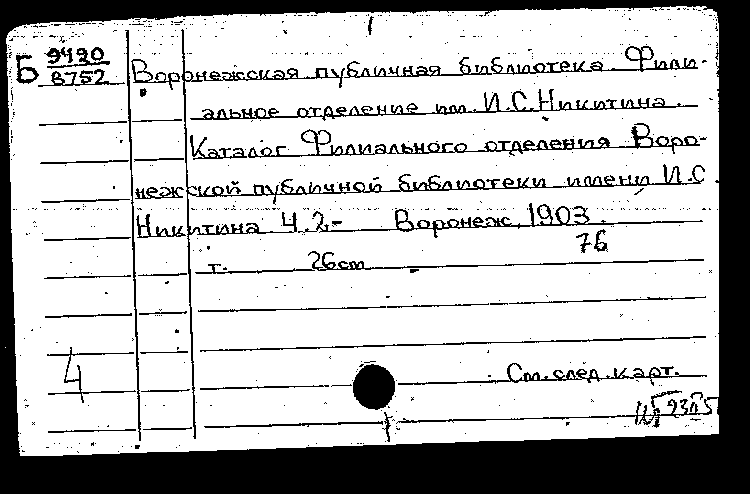 Б 9420
8752
Воронежская публичная библиотека. Фили-
альное отделение им. И.С. Никитина.
Каталог Филиального отделения Воро-
нежской публичной библиотеки имени И.С.
Никитина Ч.2,- Воронеж, 1903.
т. 26cm 76
4
См. след. карт.